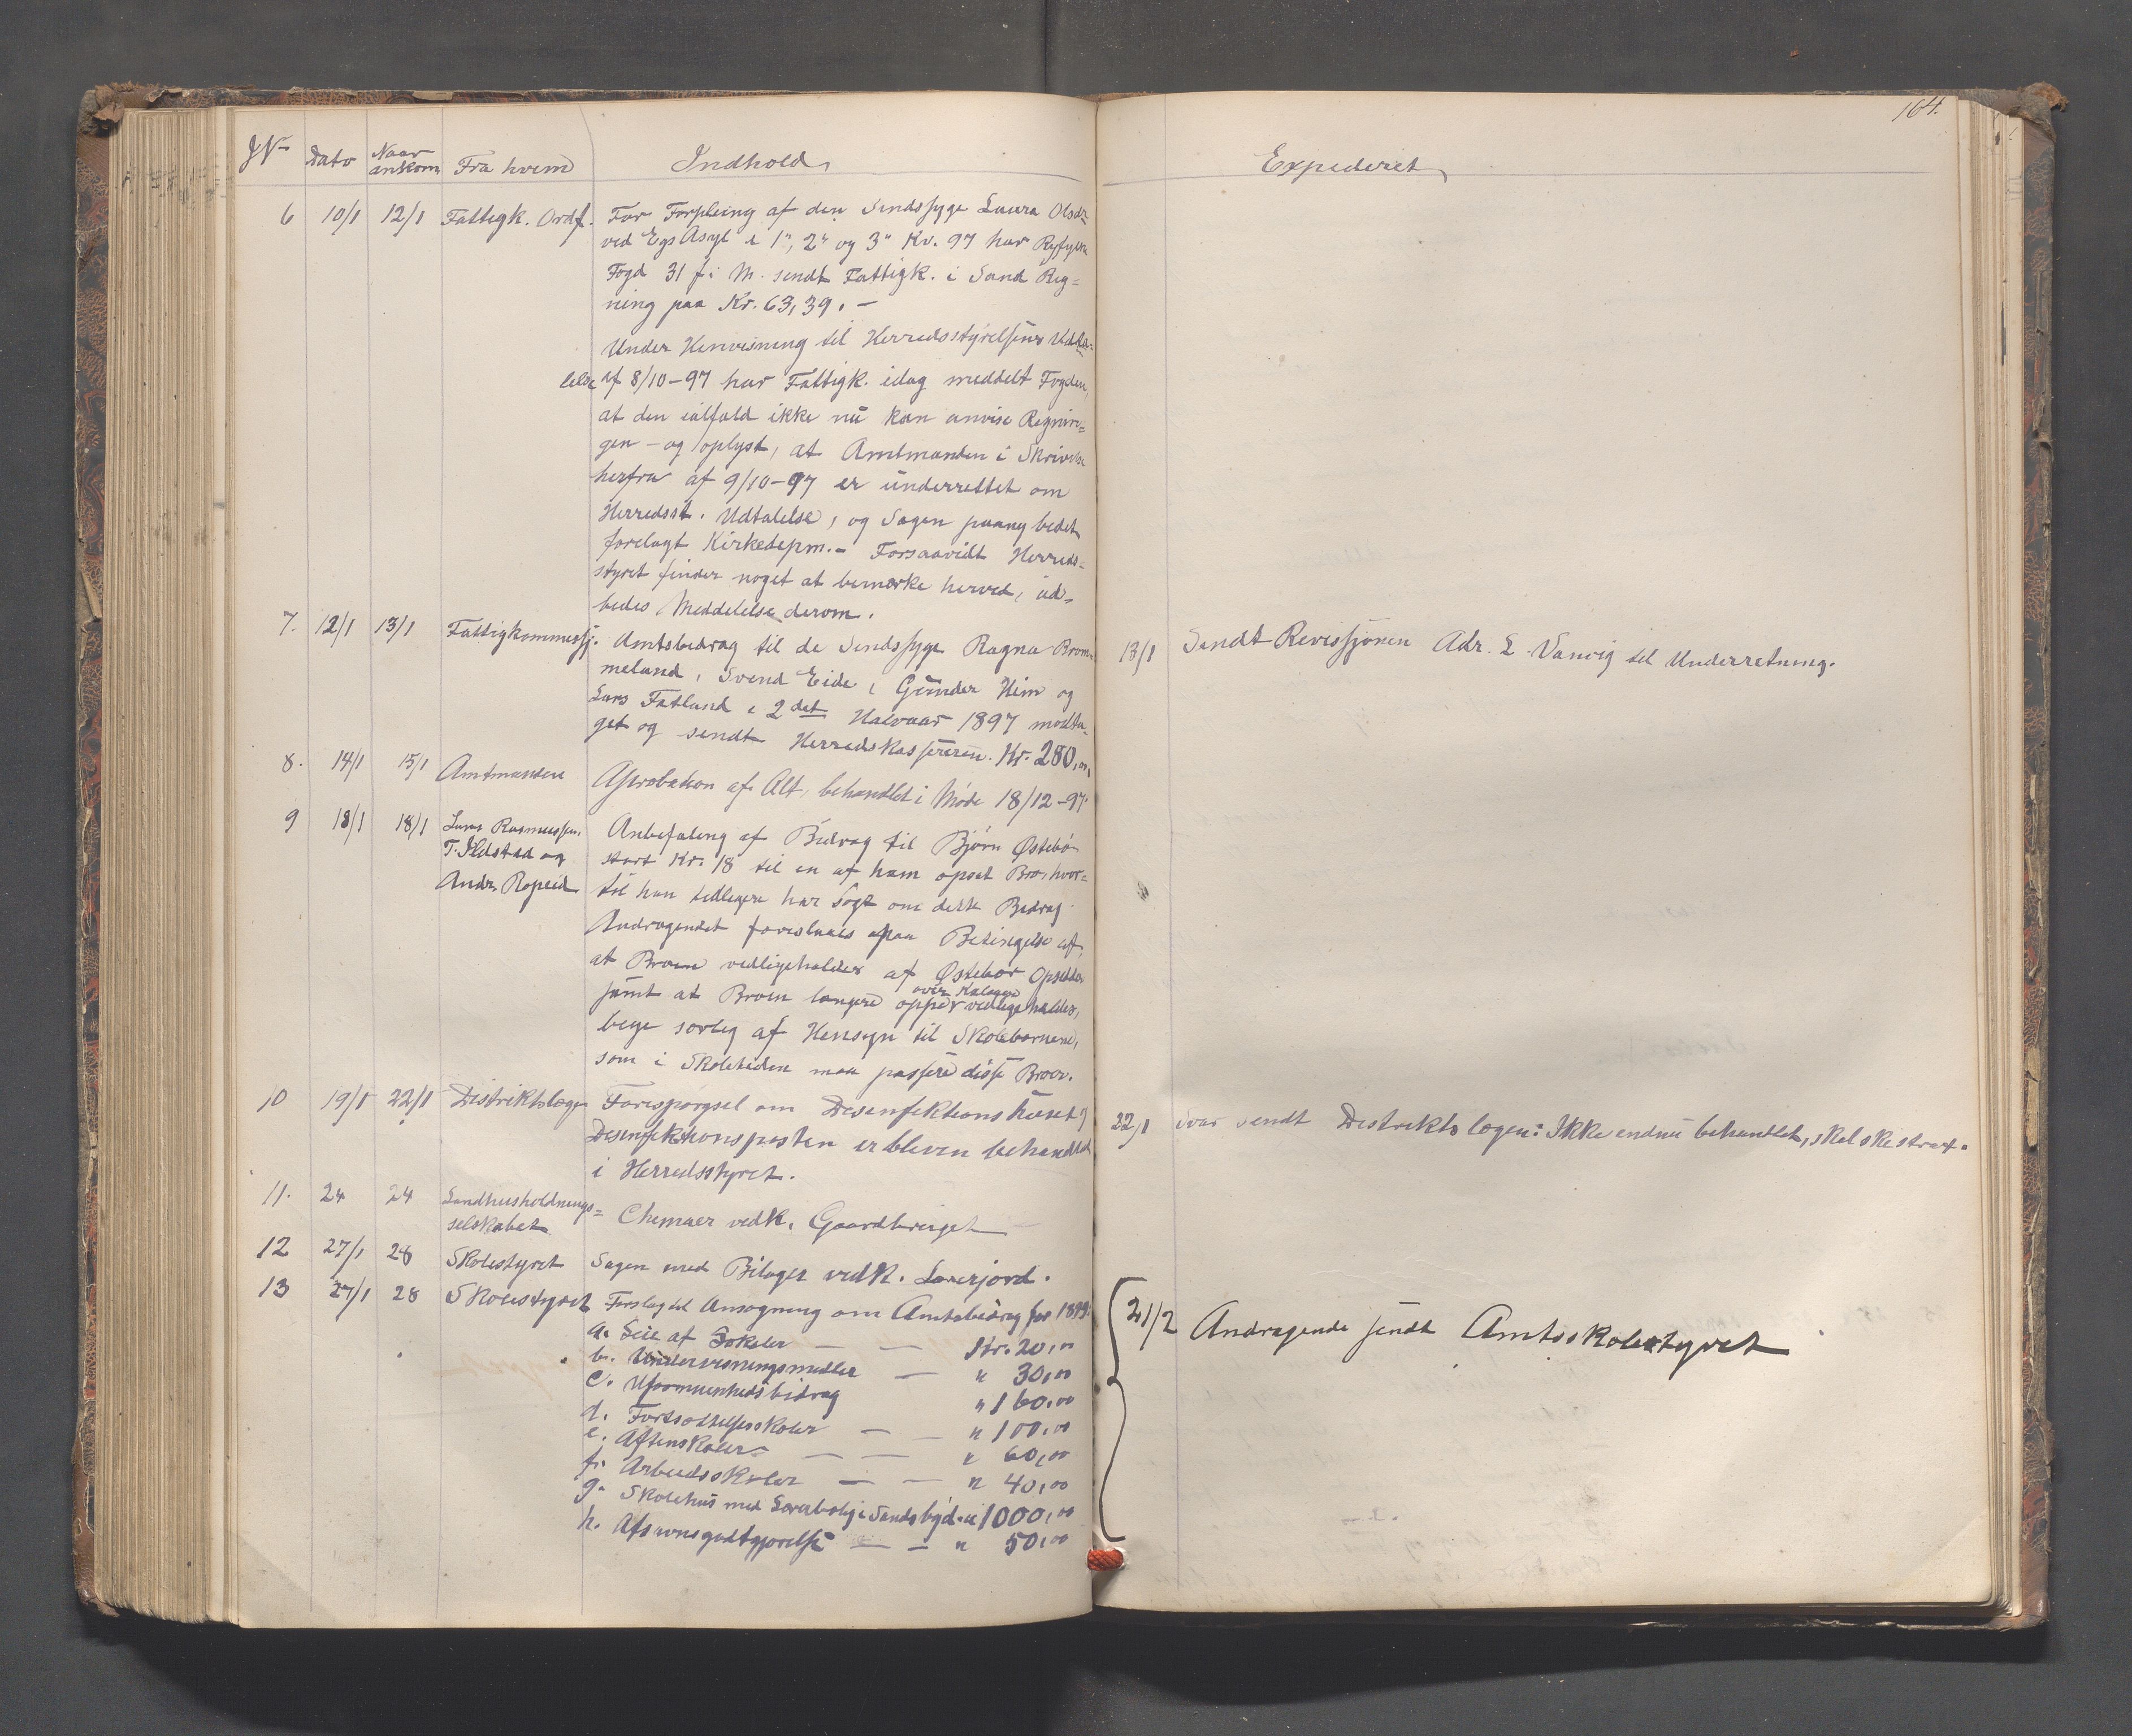 164.
J№ Dato Naar ankom Fra hvem Indhold Expederet
6 10/1 12/1 Fattigk. Ordf. For Forpleining af den Sindssyge Laura Olsdr
ved Egs Asyl i 1", 2" og 3" Kv. 97 har Ryfylke
Fogd 31 f. M. sendt Fattigk. i Sand Reg=
ning paa Kr. 63,39. –
Under Henvisning til Herredsstyrelsens Udta=
lelse af 8/10-97 har Fattigk. idag meddelt Fogden,
at den ialfald ikke nu kan anvise Regnin=
gen – og oplyst, at Amtmanden i Skrivelse
herfra af 9/10-97 er underrettet om
Herredsst. Udtalelse, og Sagen paany bedet
forelagt Kirkedepm. – Forsaavidt Herreds=
styret finder noget at bemærke herved, ud=
bedes Meddelelse derom.
7. 12/1 13/1 Fattigkommissj. Amtsbidrag til de Sindssyge Ragna Brom=
meland, Svend Eide, Gunder Hiim og
Lars Fatland i 2det Halvaar 1897 modta=
get og sendt Herredskassereren. Kr. 280,00
13/1 Sendt Revissjonen Adr. L. Vanvig til Underretning.
8. 14/1 15/1 Amtmanden Approbation af Alt, behandlet i Møde 18/12-97.
9 18/1 18/1 Lars Rasmussen, Anbefaling af Bidrag til Bjørn Østebø
T. Ilstad og stort Kr. 18 til en af ham opsat Bro, hvor=
Andr. Ropeid til han tidligere har søgt om dette Bidrag
Andragendet foreslaaes paa Betingelse af,
at Broen vedligeholdes af Østebør Opsidder
samt at Broen længere oppe over Kalager vedligeholdes,
begge særlig af Hensyn til Skolebørnene,
som i Skoletiden maa passere disse Broer.
10 19/1 22/1 Distriktslægen Forespørgsel om Desenfektionshuset &
Desenfektionsposten er bleven behandlet
i Herredsstyret.
22/1 Svar sendt Distriktslægen: Ikke endnu behandlet, skal ske strax.
11. 24 24 Landhusholdnings=
selskabet Chemaer vedk. Gaardbruget
12 27/1 28 Skolestyret Sagen med Bilager vedk. Lærerjord.
13 27/1 28 Skolestyret Forslag til Ansøgning om Amtsbidrag for 1899:
a. Leie af Lokaler — — Kr. 20,00
b. Undervisningsmidler — " 30,00
c. Uformuenhedsbidrag " 160,00
d. Fortsættelsesskoler — — " 100,00
e. Aftenskoler — — " 60,00
f. Arbeidsskoler — — " 40,00
g. Skolehus med Lærerbolig i Sandsbygd. " 1000,00
h. Afsavnsgodtgjørelse — — " 50,00
21/2 Andragende sendt Amtsskolestyret